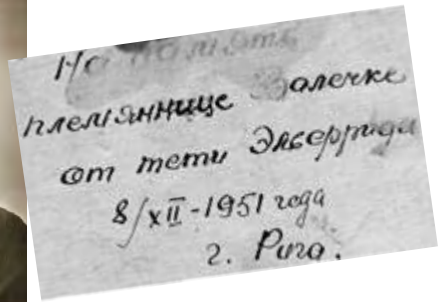 На память
племяннице Валечке
от тети Эльфриды
8/XII-1951 года
г. Рига.